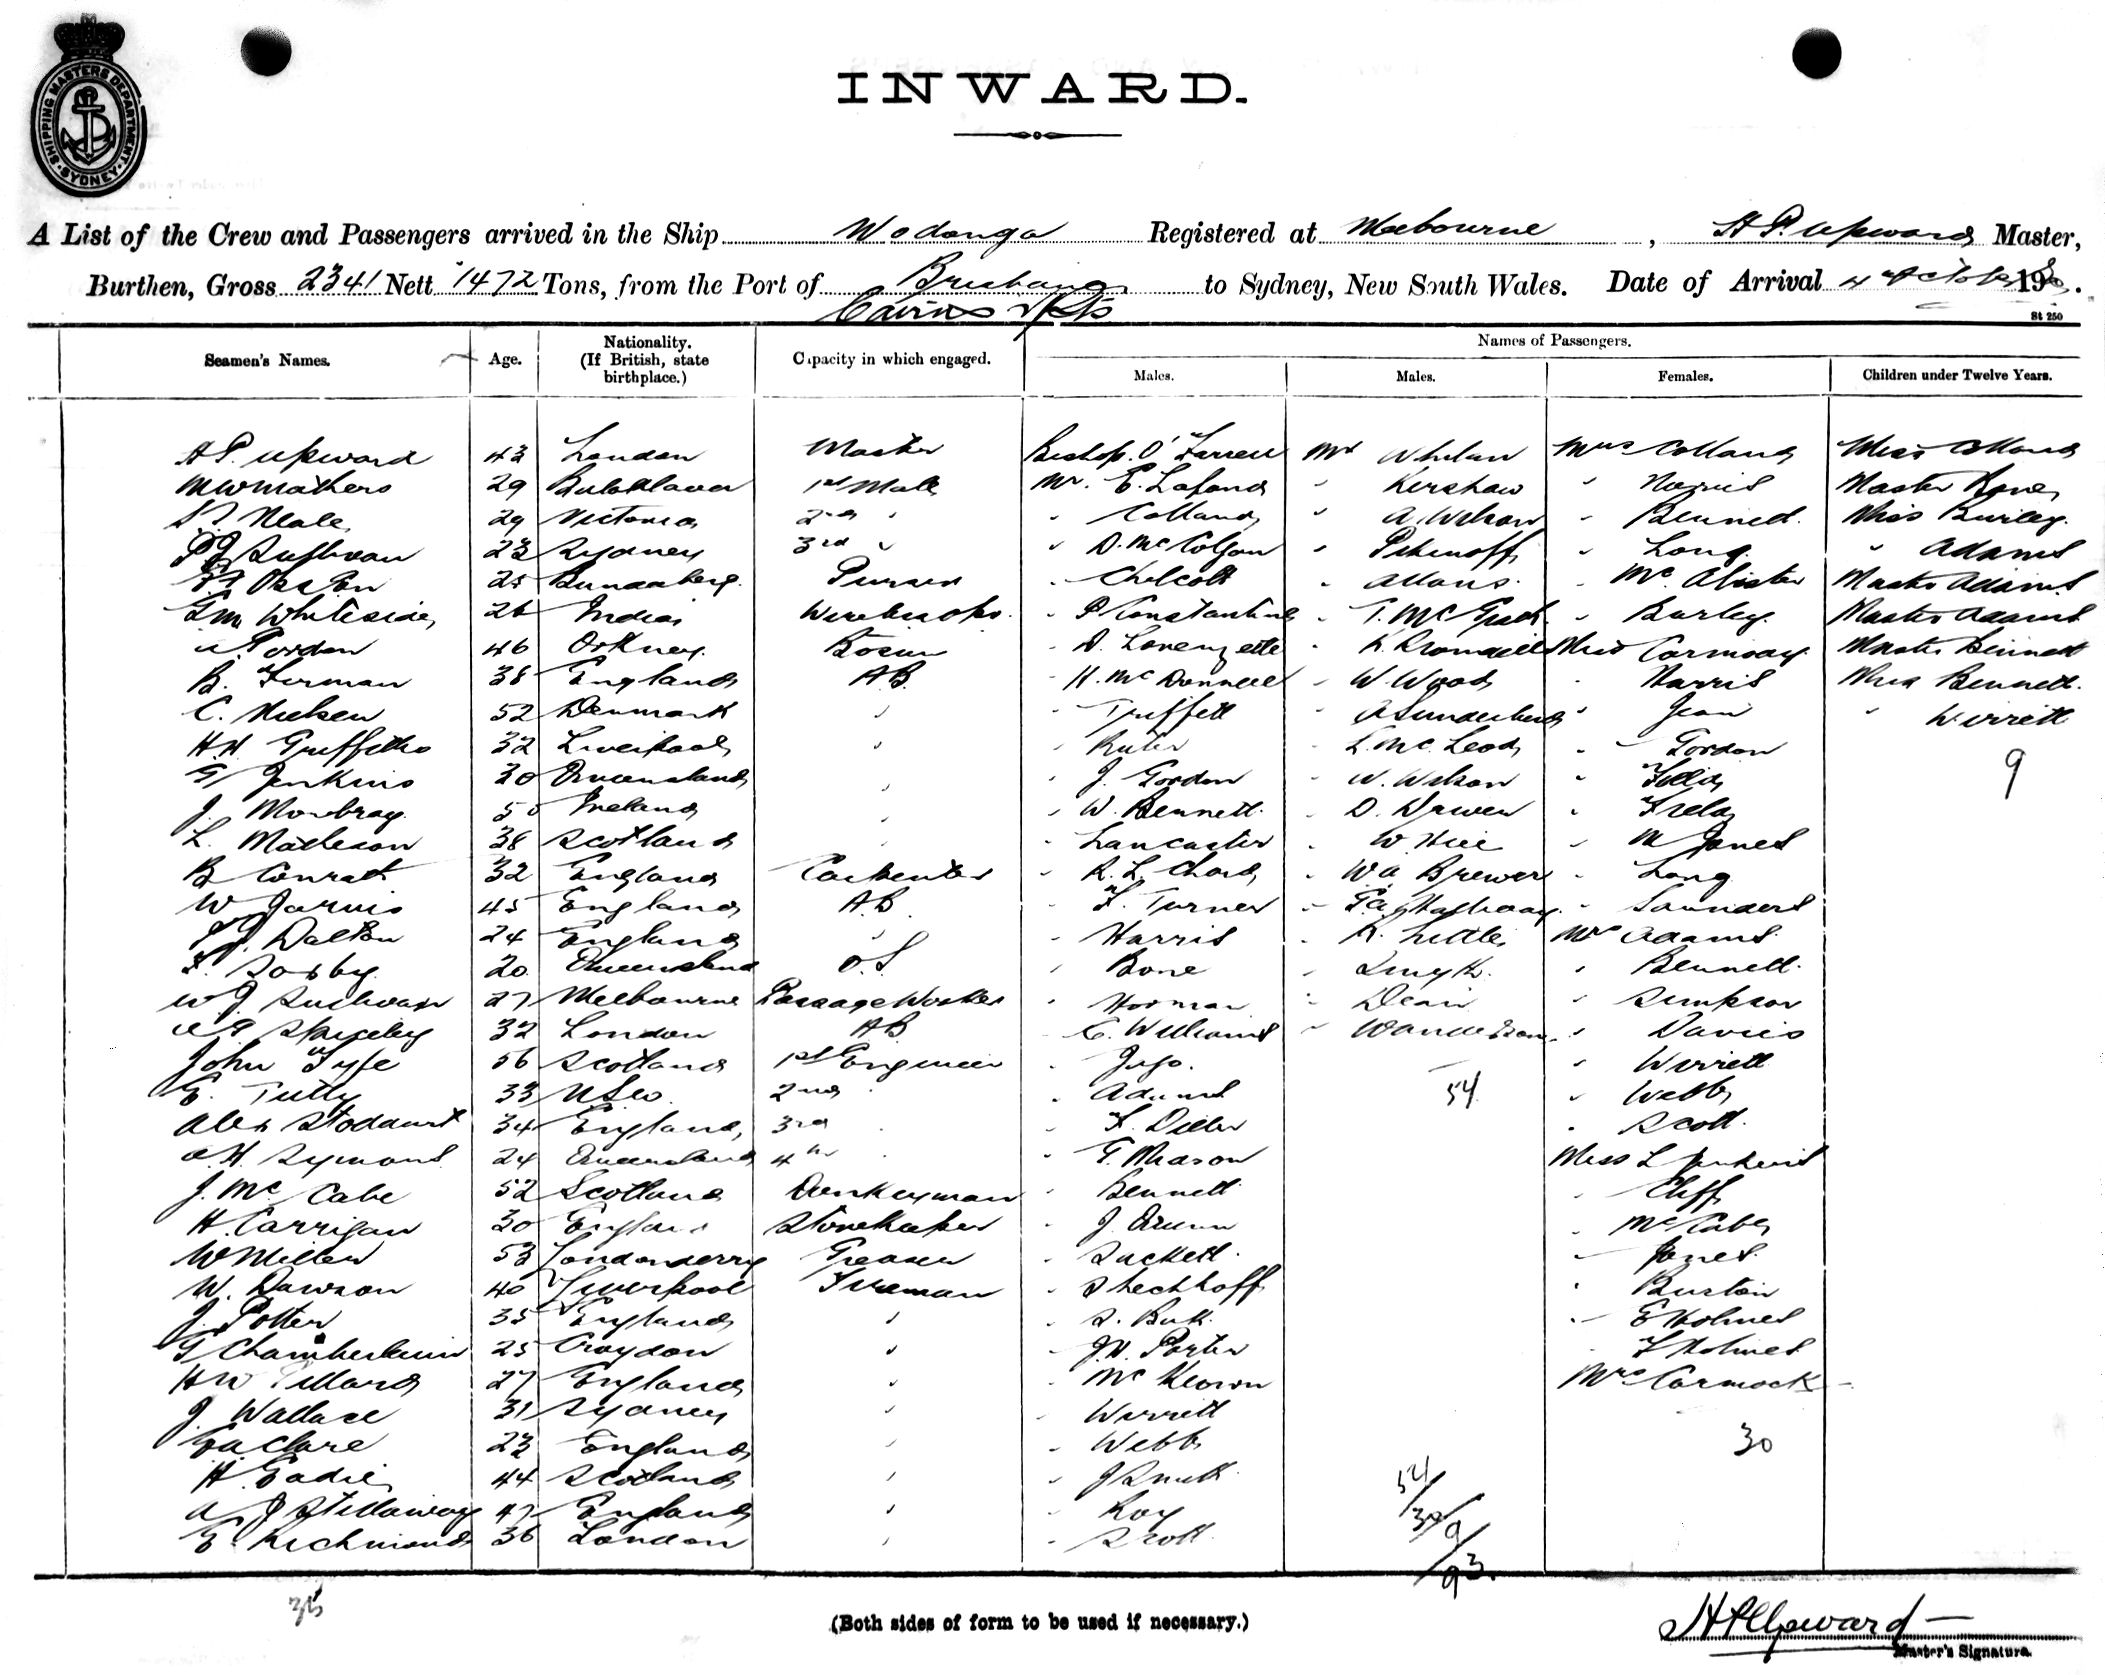 SHIPPING MASTERS DEPARTMENT SYDNEY
INWARD.
A List of the Crew and Passengers arrived in the Ship Wodonga Registered at Melbourne, H P. Upward Master,
Burthen, Gross 2341 Nett 1472 Tons, from the Port of Brisbane to Sydney, New South Wales. Date of Arrival 4 October 190
Cairns
St 250
Seamen's Names. Age. Nationality. (If British, state birthplace.) Capacity in which engaged. Names of Passengers.
Males. Males. Females. Children under Twelve Years.
H P. Upward 42 London Master Bishop O'Farrell Mr Whelan Mrs Colland Miss Colland
M W Mathers 29 1st Mate Mr. E. Lafond " Kershaw " Norris Master
Neale 29 Victoria 2nd " " Colland " A. Wilson " Bennett. Miss Burley.
Sullivan 23 Sydney 3rd " " D. McColgan " " Long. " Adams
25 Bundaberg. Purser " Chilcott " " Mc Alister Master Adams
Whiteside 26 India " P Constantine " T. McGrath " Burley. Master Adams
Gordon 46 Orkney. Bosun " D. Lorenzette " Miss Carmody Master Bennett
B. Firman 38 England A.B. " H. McDonnell " W. Wood " Harris Miss Bennett.
C. Nielsen 52 Denmark " " Triffett " " Jean " Wirrett
H H Griffiths 32 Liverpool " " " L. McLeod " Gordon 9
G Jenkins 30 Queensland " " J. Gordon " W. Wilson "
J. Mowbray. 50 Ireland " " W. Bennett. " D. "
L. Matheson 38 Scotland " " Lancaster " W. " M Jones
B Conrad 32 England Carpenter " R. L. Chard " W A Brewer " Long
W Jarvis 45 England A.B. " F. Turner " " Saunders
Dalton 24 England " " Harris " R. Little Mrs Adams
Saxby. 20 Queensland O.S. " Bone " Smyth. " Bennett.
W J Sullivan 27 Melbourne Passage Worker " Norman " Dean " Simpson
32 London AB " C. Williams " " Davies
John Fyfe 56 Scotland 1st Engineer " Jugo. " Wirrett
E. Tutty 33 NSW. 2nd " " Adams 54 " Webb
Alex Stoddart 34 England 3rd " " F. " Scott.
Symons 24 Queensland 4th " " G. Mason Miss L Jenkins
J. McCabe 52 Scotland Donkeyman " Bennett " Cliff
H. Carrigan 30 England Storekeeper " J. " McCabe
W Miller 53 Londonderry Greaser " Sackett. " Jones
W. Dawson 40 Liverpool Fireman " " Burton
J. Potter 35 England " " " E Holmes
G Chamberlain 25 Croydon " " J. H. Porter " F Holmes
H W 27 England " " McKeown Mrs Cormack
J. Wallace 31 Sydney " " Wirrett
Clare 23 England " " Webb 30
H. Eadie 44 Scotland " " J Smith
A J Stillaway 47 England " " Roy 54/30/9/93.
E. Richmond 36 London " " Scott
35
(Both sides of form to be used if necessary.)
H P Upward
Master's Signature.